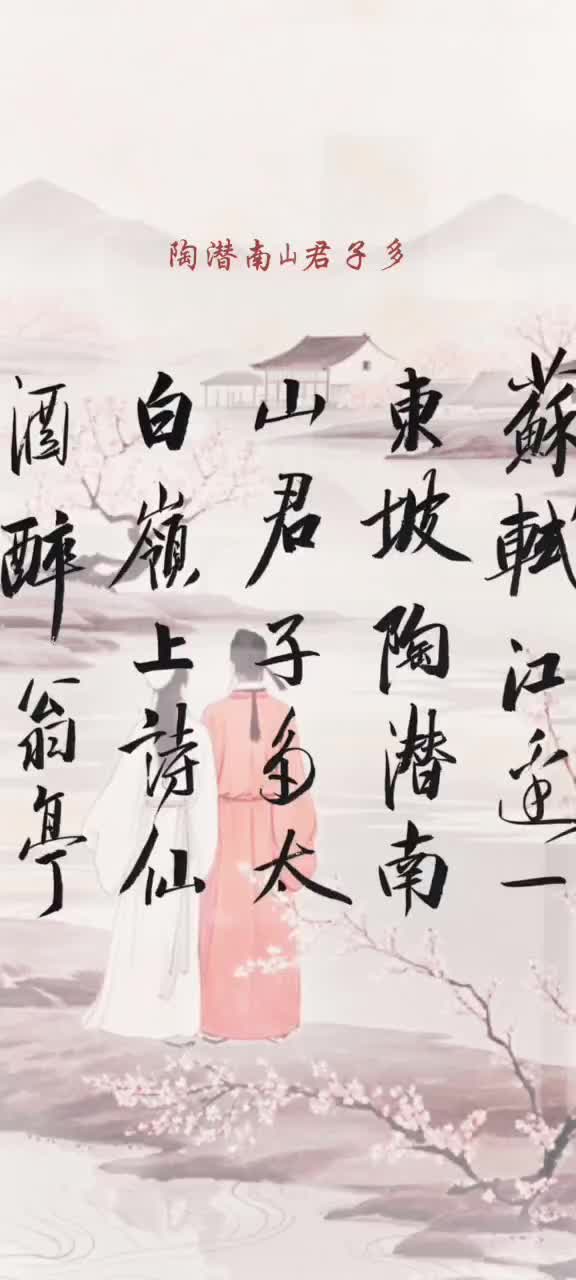 陶潜南山君子多
蘇軾江邊一
東坡陶潜南
山君子多太
白嶺上詩仙
酒醉翁亭